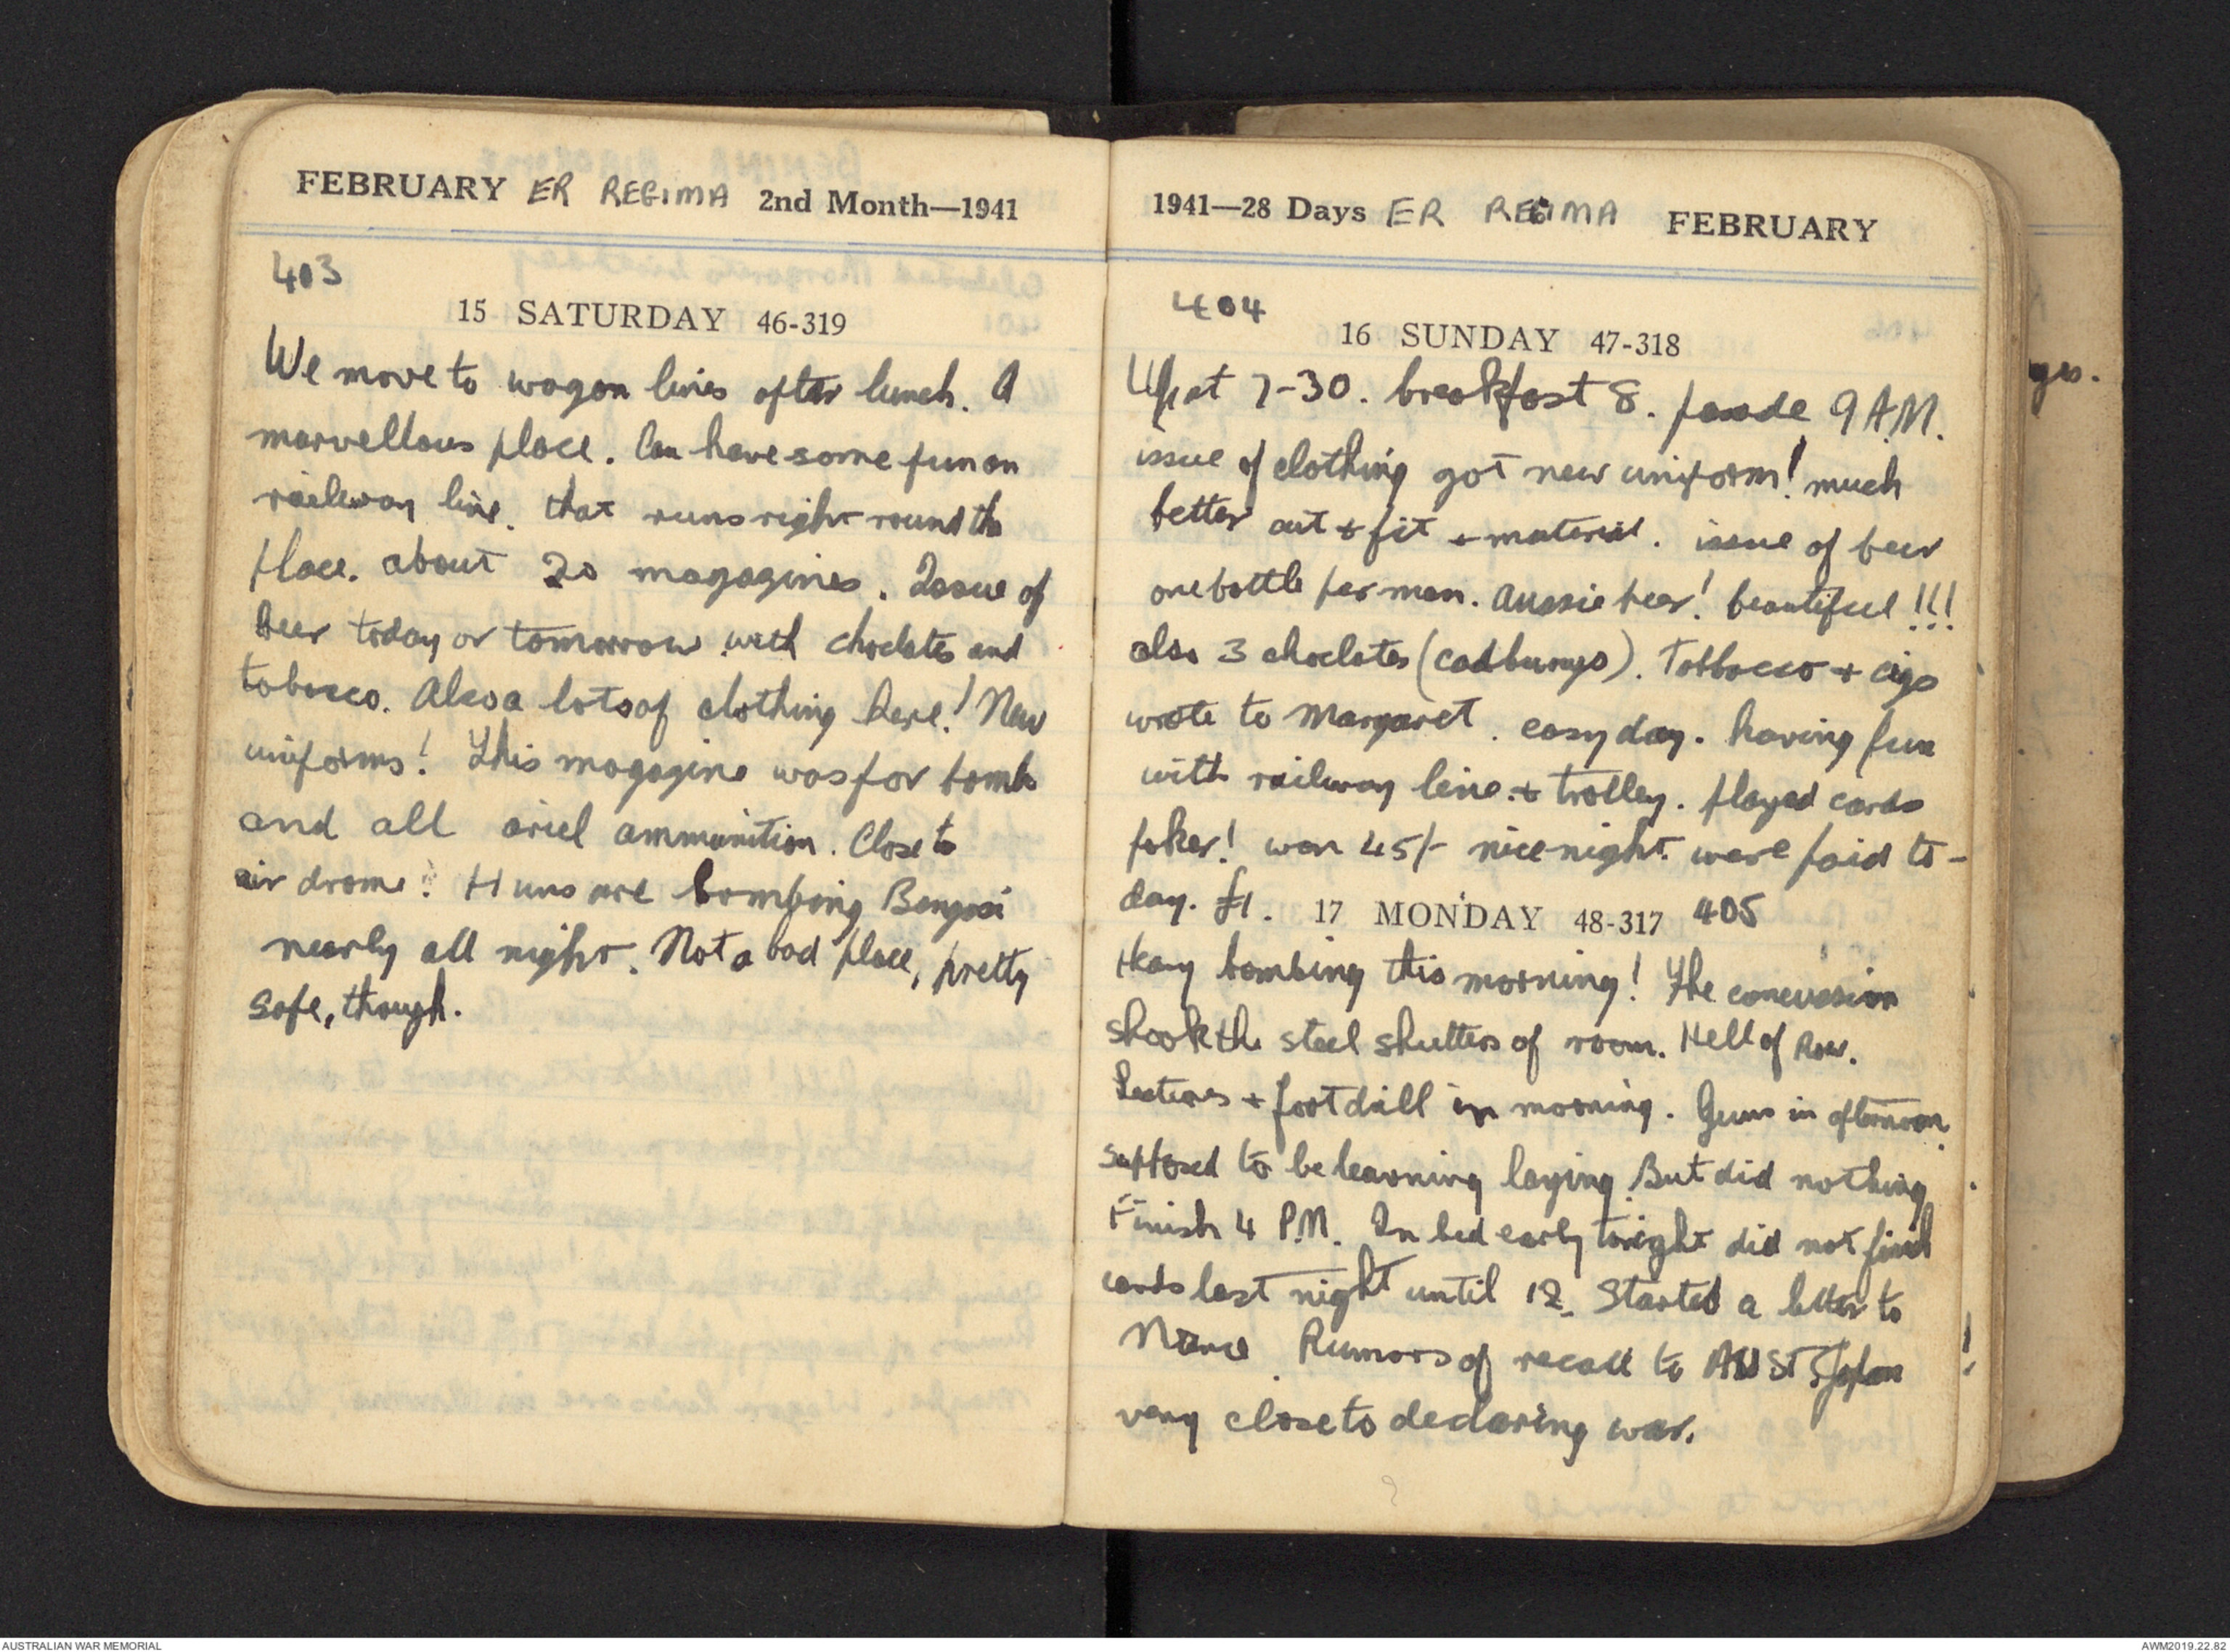 FEBRUARY ER REGIMA 2nd Month—1941
403
15 SATURDAY 46-319
We move to wagon lines after lunch. A
marvellous place. Can have some fun on
railway line. that runs right round the
place. about 20 magazines. Issue of
beer today or tomorrow with choclates and
tobacco. Also a lots of clothing here! New
uniforms! This magazine was for bombs
and all ariel ammunition. Close to
air drome. Huns are bombing Bengasi
nearly all night. Not a bad place, pretty
safe, though.
1941—28 Days ER REGIMA FEBRUARY
404
16 SUNDAY 47-318
Up at 7-30. breakfast 8. parade 9 A.M.
issue of clothing got new uniform! much
better cut + fit + material. issue of beer
one bottle per man. Aussie beer! beautiful!!!
also 3 choclates (cadburys). Tobbacco + cigs
wrote to Margaret. easy day. having fun
with railway line + trolley. played cards
poker! won 45/- nice night. were paid to-
day. £1. 17 MONDAY 48-317 405
Heavy bombing this morning! The concussion
shook the steel shutters of room. Hell of Row.
Lectures + foot drill in morning. Guns in afternoon.
supposed to be learning laying. But did nothing
Finish 4 P.M. In bed early tonight did not finish
cards last night until 12. Started a letter to
Rumors of recall to AUST. Japan
very close to declaring war.
ges.
AUSTRALIAN WAR MEMORIAL
AWM2019.22.82